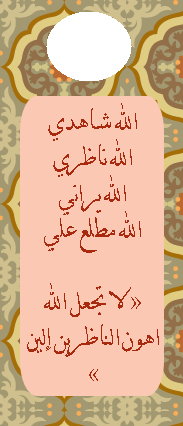 الله شاهدي
الله ناظري
الله يراني
الله مطلع علي
«لا تجعل الله
اهون الناظرين إلين
»